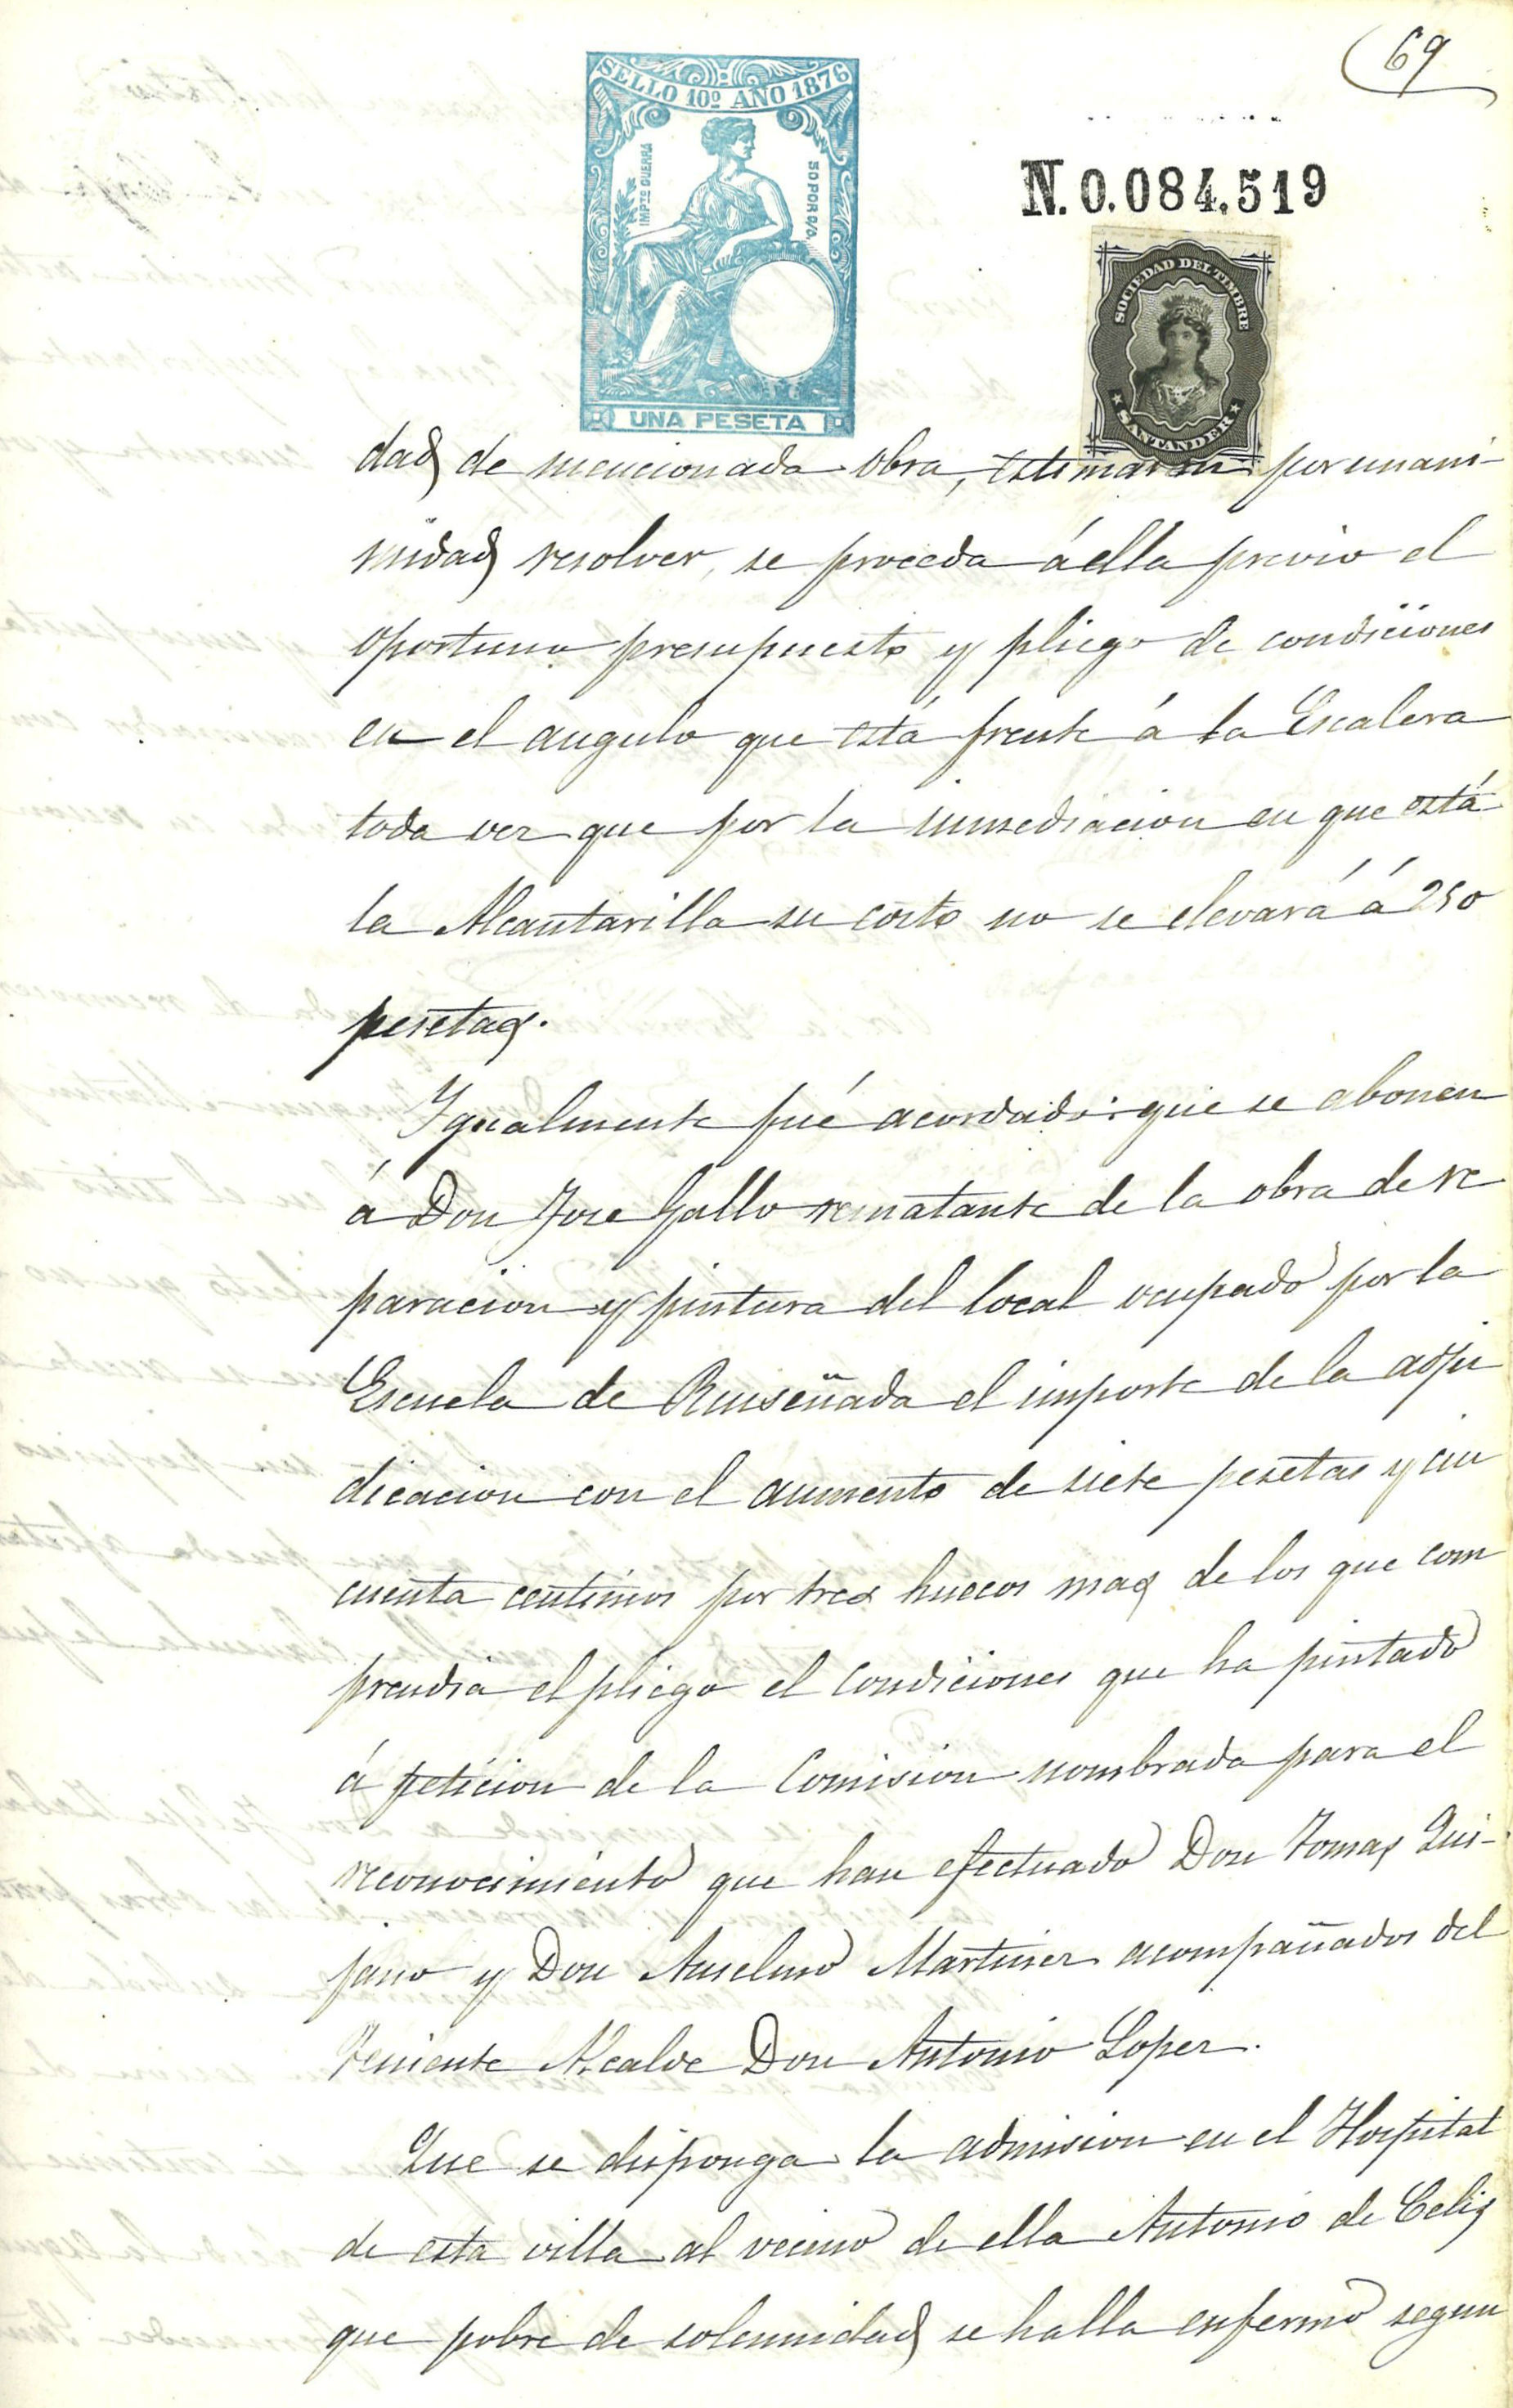 69
SELLO 10º AÑO 1876
IMPTO GUERRA
50 POR 0/0
UNA PESETA
N. 0.084.519
SOCIEDAD DEL TIMBRE
SANTANDER
dad de mencionada obra, estimaron por unani-
midad resolver, se proceda á ella previo el
oportuno presupuesto y pliego de condiciones
en el angulo que está frente á la Escalera
toda vez que por la inmediacion en que está
la Alcantarilla su costo no se elevará á 250
pesetas.
Igualmente fué acordado: que se abonen
á Don Jose Gallo rematante de la obra de re
paracion y pintura del local ocupado por la
Escuela de Ruiseñada el importe de la adju
dicacion con el aumento de siete pesetas y cin
cuenta centimos por tres huecos mas de los que com
prendia el pliego el condiciones que ha pintado
á peticion de la Comision nombrada para el
reconocimiento que han efectuado Don Tomas Qui-
jano y Don Anselmo Martinez acompañados del
Teniente Alcalde Don Antonio Lopez.
Que se disponga la admision en el Hospital
de esta villa al vecino de ella Antonio de Celis
que pobre de solemnidad se halla enfermo segun